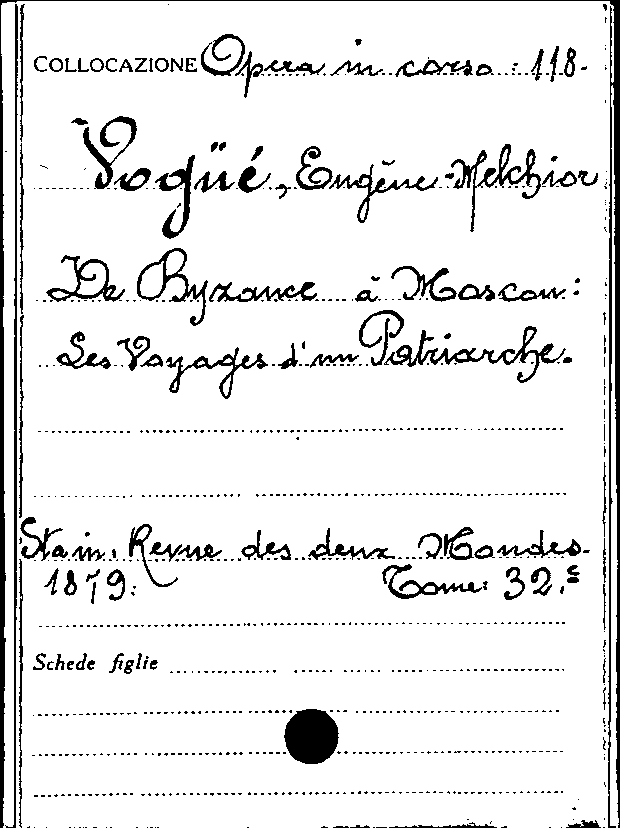 COLLOCAZIONE Opera in corso : 118.
Vogüé, Eugène-Melchior
De Byzance à Moscou :
Les Voyages d'un Patriarche.
Sta in. Revue des deux Mondes.
1879. Tome: 32.e
Schede figlie